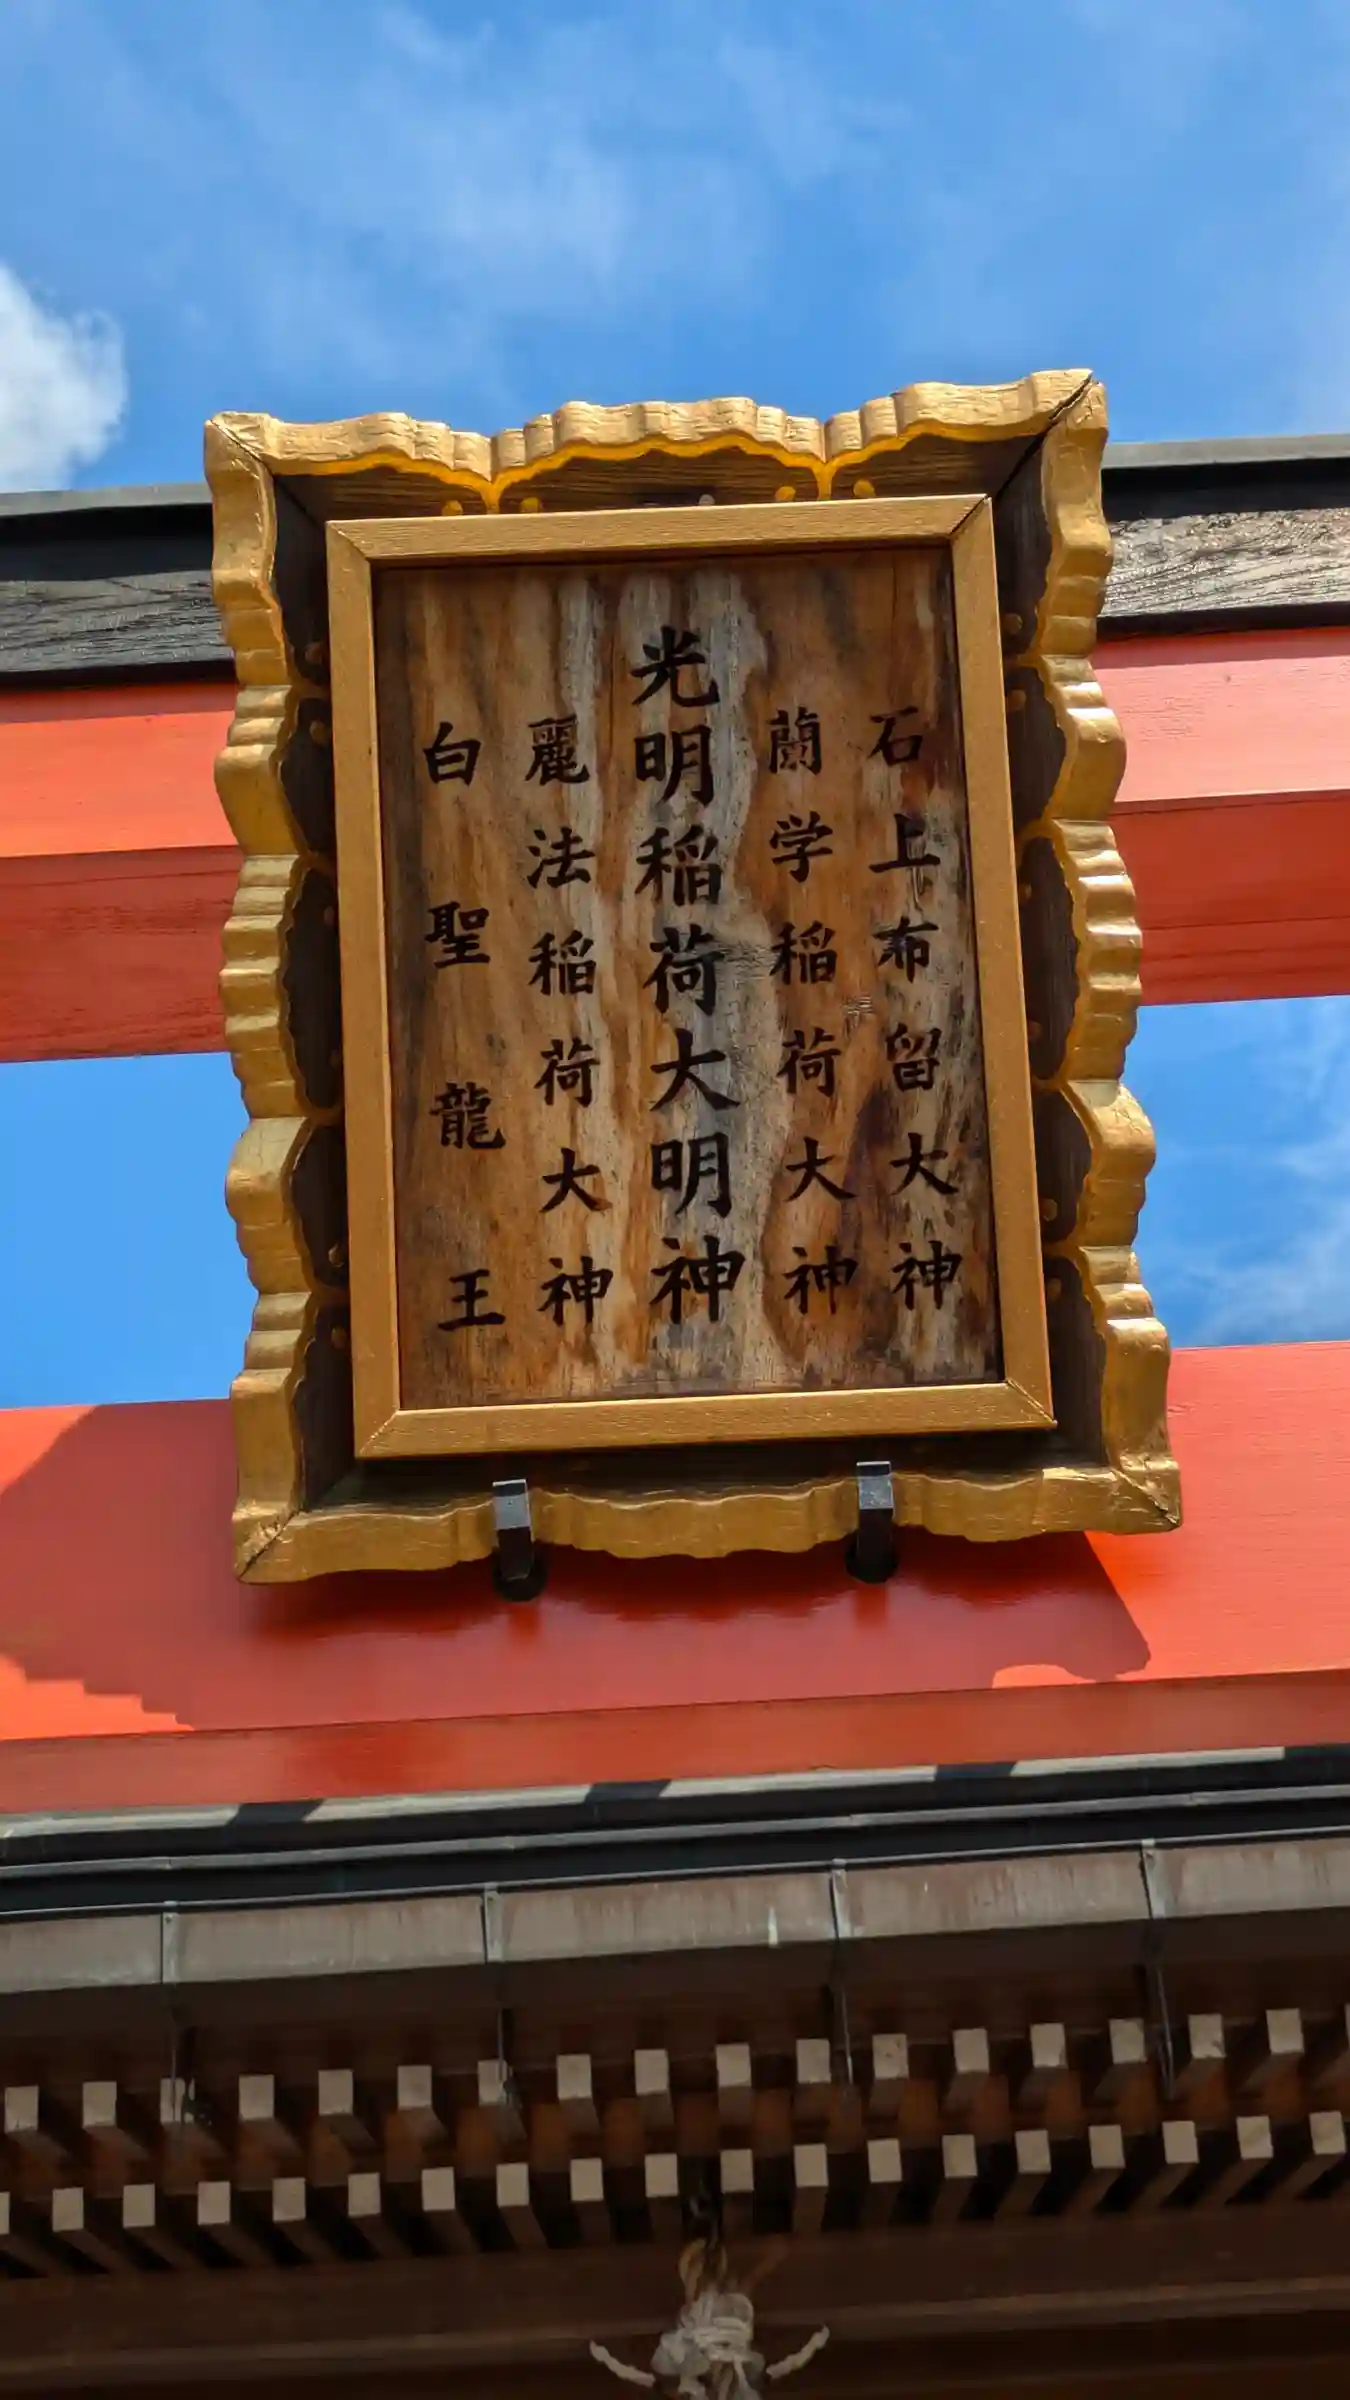 石上布留大神
蘭学稲荷大神
光明稲荷大明神
麗法稲荷大神
白聖龍王